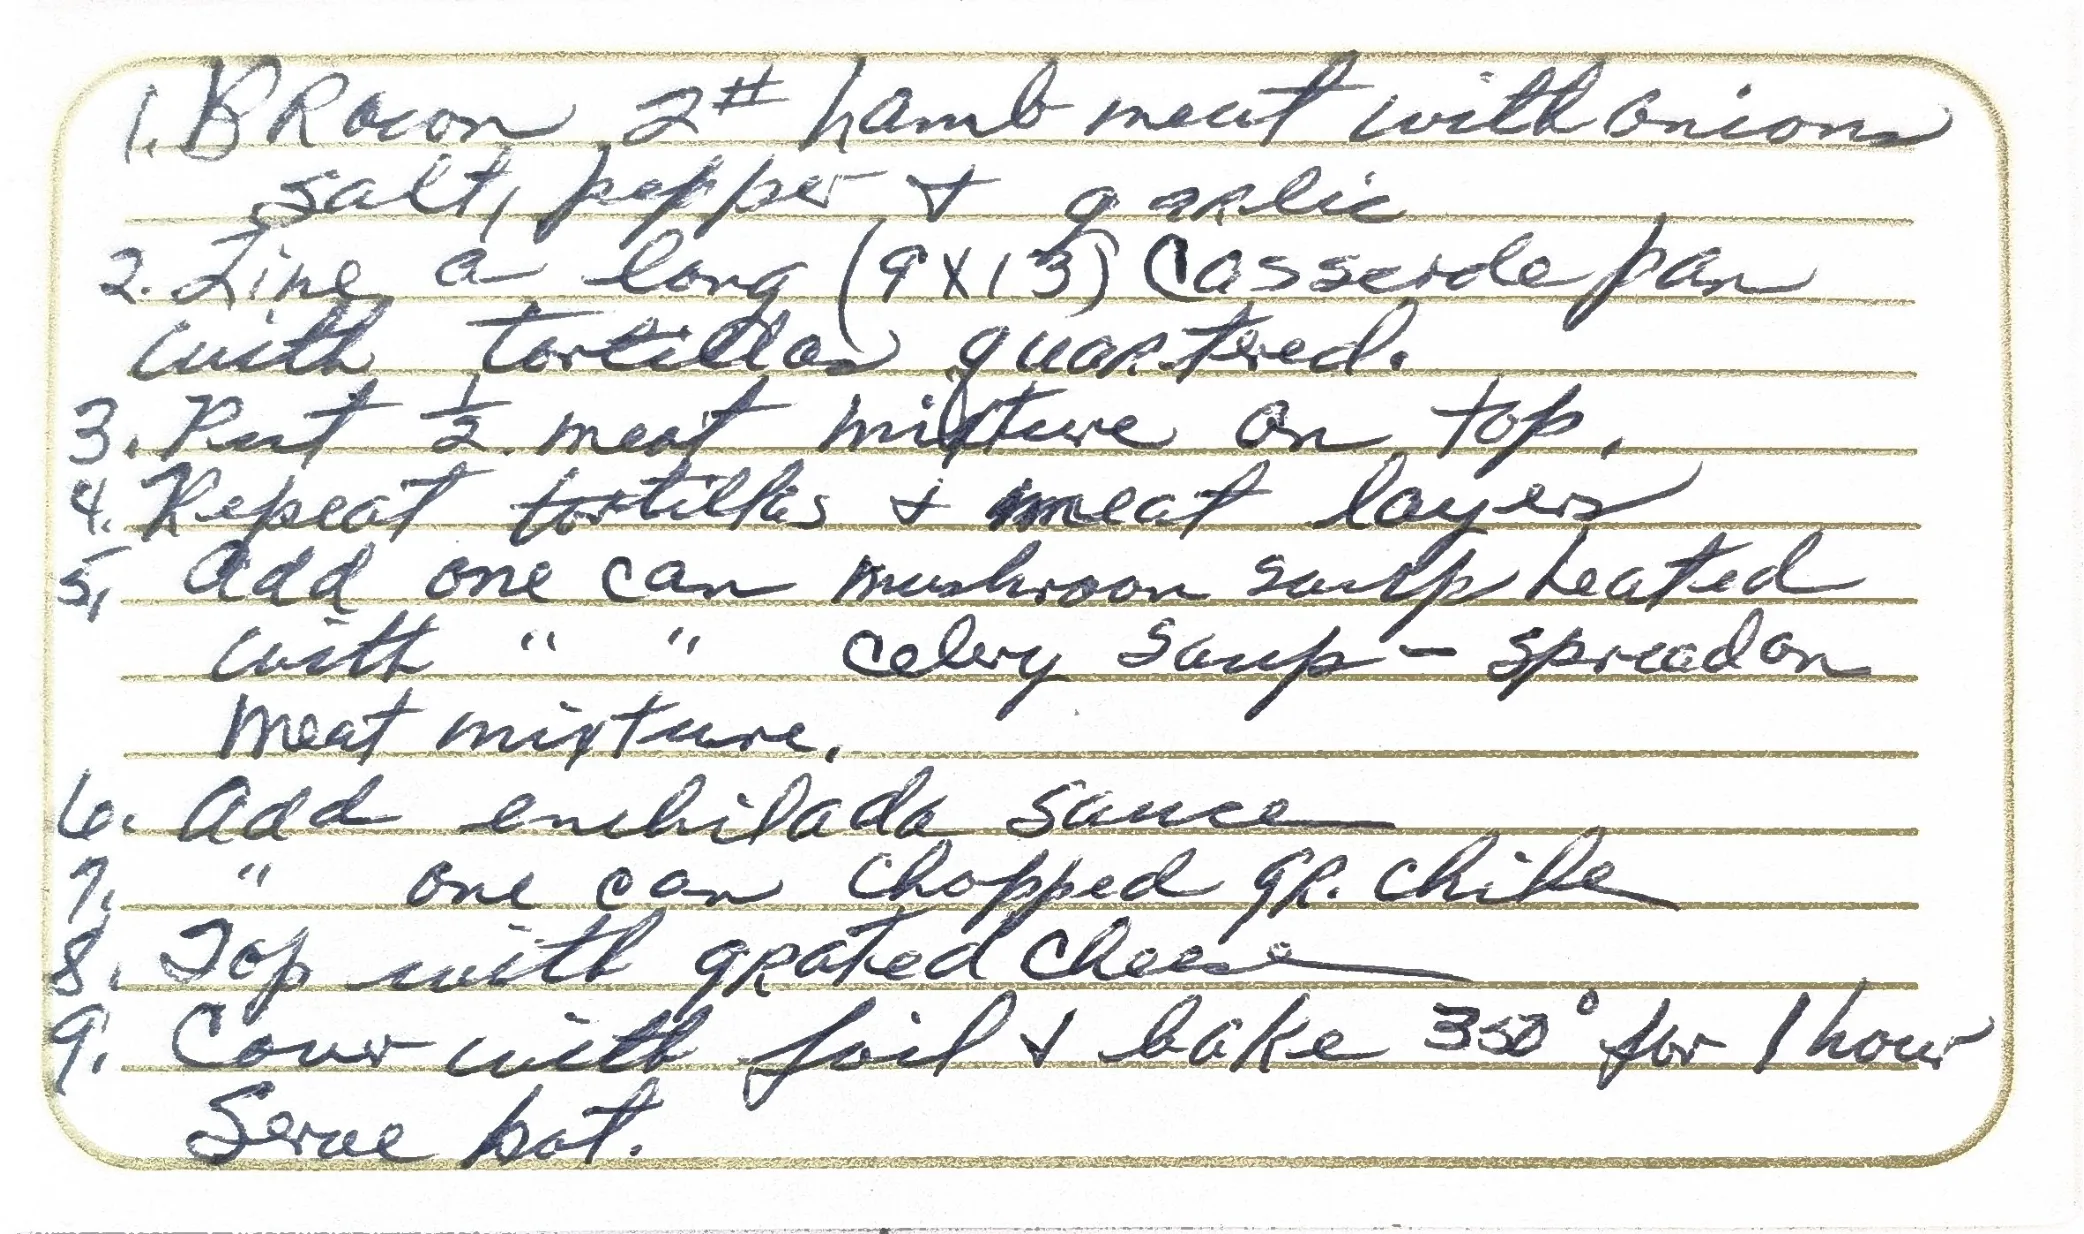 1. Brown 2# hamb meat with onions
salt, pepper + garlic
2. Line a long (9x13) Casserole pan
with tortillas quartered.
3. Put ½ meat mixture on top.
4. Repeat tortillas + meat layers
5. Add one can mushroom soup heated
with " " celery soup - spread on
meat mixture.
6. Add enchilada sauce
7. " one can chopped gr. chile
8. Top with grated cheese
9. Cover with foil + bake 350° for 1 hour
Serve hot.